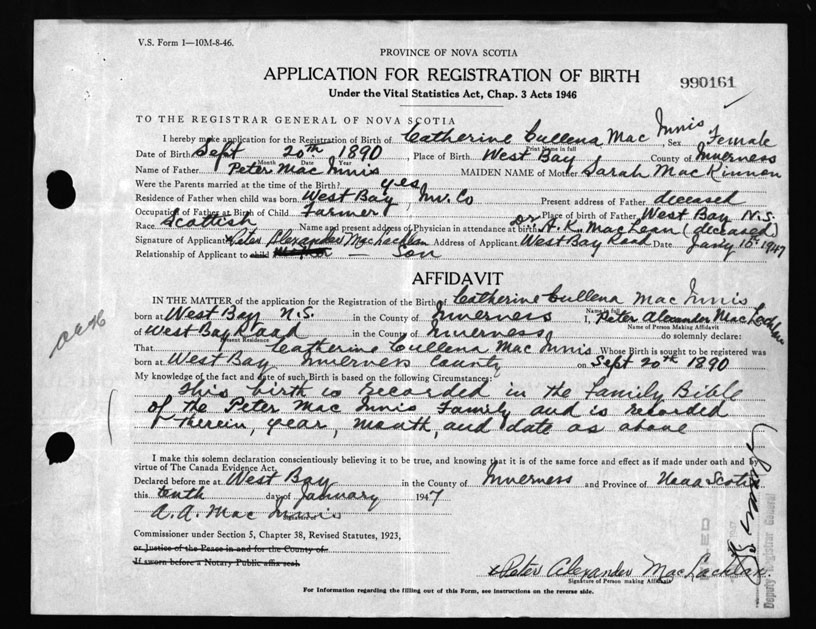 V.S. Form 1—10M-8-46.
PROVINCE OF NOVA SCOTIA
APPLICATION FOR REGISTRATION OF BIRTH
990161
Under the Vital Statistics Act, Chap. 3 Acts 1946
TO THE REGISTRAR GENERAL OF NOVA SCOTIA
I hereby make application for the Registration of Birth of Catherine Cullena Mac Innis, Sex Female
Print Name in full
Date of Birth Sept 20th 1890, Place of Birth West Bay County of Inverness
Month Date Year
Name of Father Peter Mac Innis MAIDEN NAME of Mother Sarah MacKinnon
Were the Parents married at the time of the Birth? yes
Residence of Father when child was born West Bay, Inv. Co Present address of Father deceased
Occupation of Father at Birth of Child Farmer Place of Birth of Father West Bay N.S.
Race Scottish Name and present address of Physician in attendance at birth Dr. A. K. MacLean (deceased)
Signature of Applicant x Peter Alexander MacLachlan Address of Applicant West Bay Road Date Jany 10th 1947
Relationship of Applicant to child mother — Son
AFFIDAVIT
IN THE MATTER of the application for the Registration of the Birth of Catherine Cullena Mac Innis
Name in full
born at West Bay N.S. in the County of Inverness I, Peter Alexander MacLachlan
Name of Person Making Affidavit
of West Bay Road in the County of Inverness do solemnly declare:
Present Residence
That Catherine Cullena Mac Innis Whose Birth is sought to be registered was
born at West Bay Inverness County on Sept 20th 1890
My knowledge of the fact and date of such Birth is based on the following Circumstances:
This birth is recorded in the Family Bible
of the Peter Mac Innis Family and is recorded
therein, year, month, and date as above
I make this solemn declaration conscientiously believing it to be true, and knowing that it is of the same force and effect as if made under oath and by
virtue of The Canada Evidence Act.
Declared before me at West Bay in the County of Inverness and Province of Nova Scotia
this tenth day of January 1947
A. A. Mac Innis
Signature of
Commissioner under Section 5, Chapter 38, Revised Statutes, 1923,
or Justice of the Peace in and for the County of
If sworn before a Notary Public affix seal.
x Peter Alexander MacLachlan.
Signature of Person making Affidavit
Deputy Registrar General
For Information regarding the filling out of this Form, see instructions on the reverse side.